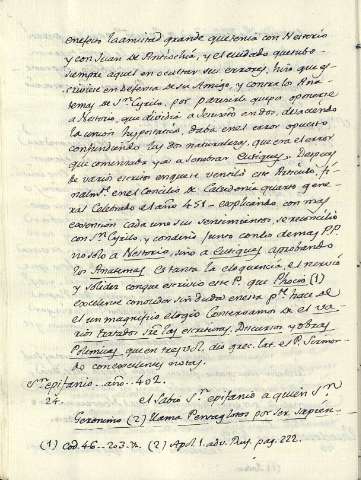 en efecto la amistad grande que tenia con Nestorio
y con Juan de Antiochia, y el cuidado que tubo
siempre aquel en ocultar sus errores, hizo que es-
criviese en defensa de su Amigo, y contra los Ana-
temas de Sn. Cyrilo, por parecerle que pa oponerse
a Nestorio, que dividia a Jesuxto en dos, desaciendo
la union hypostatica, daba en el error opuesto
confundiendo las dos naturalezas, que era el error
que comenzaba ya a sembrar Eutiques. Despues
de varios escritos en que se ventiló este Articulo, fi-
nalmte. en el Concilio de Calcedonia quarto gene-
ral Celebrado el año 451 - explicando con mas
extension cada uno sus sentimientos, se reconcilio
con Sn. Cyrilo, y condenó junto con los demas PP.
no solo a Nestorio, sino a Eutiques aprobando
los Anatemas. Es tanta la eloquencia, el nervio
y solidez con que escrivio este P. que Phocio (1)
excelente conocedor sin duda en esta pte. hace de
el un magnifico elogio. Conservamos de el va-
rios tratados sre. las escrituras, Discursos y obras
Polemicas, que en tres vol. dio grec. lat. el P. Sirmon-
do con excelentes notas.
Sn. epifanio - año - 402.
24. el Sabio Sn. epifanio a quien Sn.
Geronimo (2) llama Pentaglotos por ser sapien-
(1) Cod. 46 - 203. (2) Apol. 1. adv. Ruf. pag. 222.